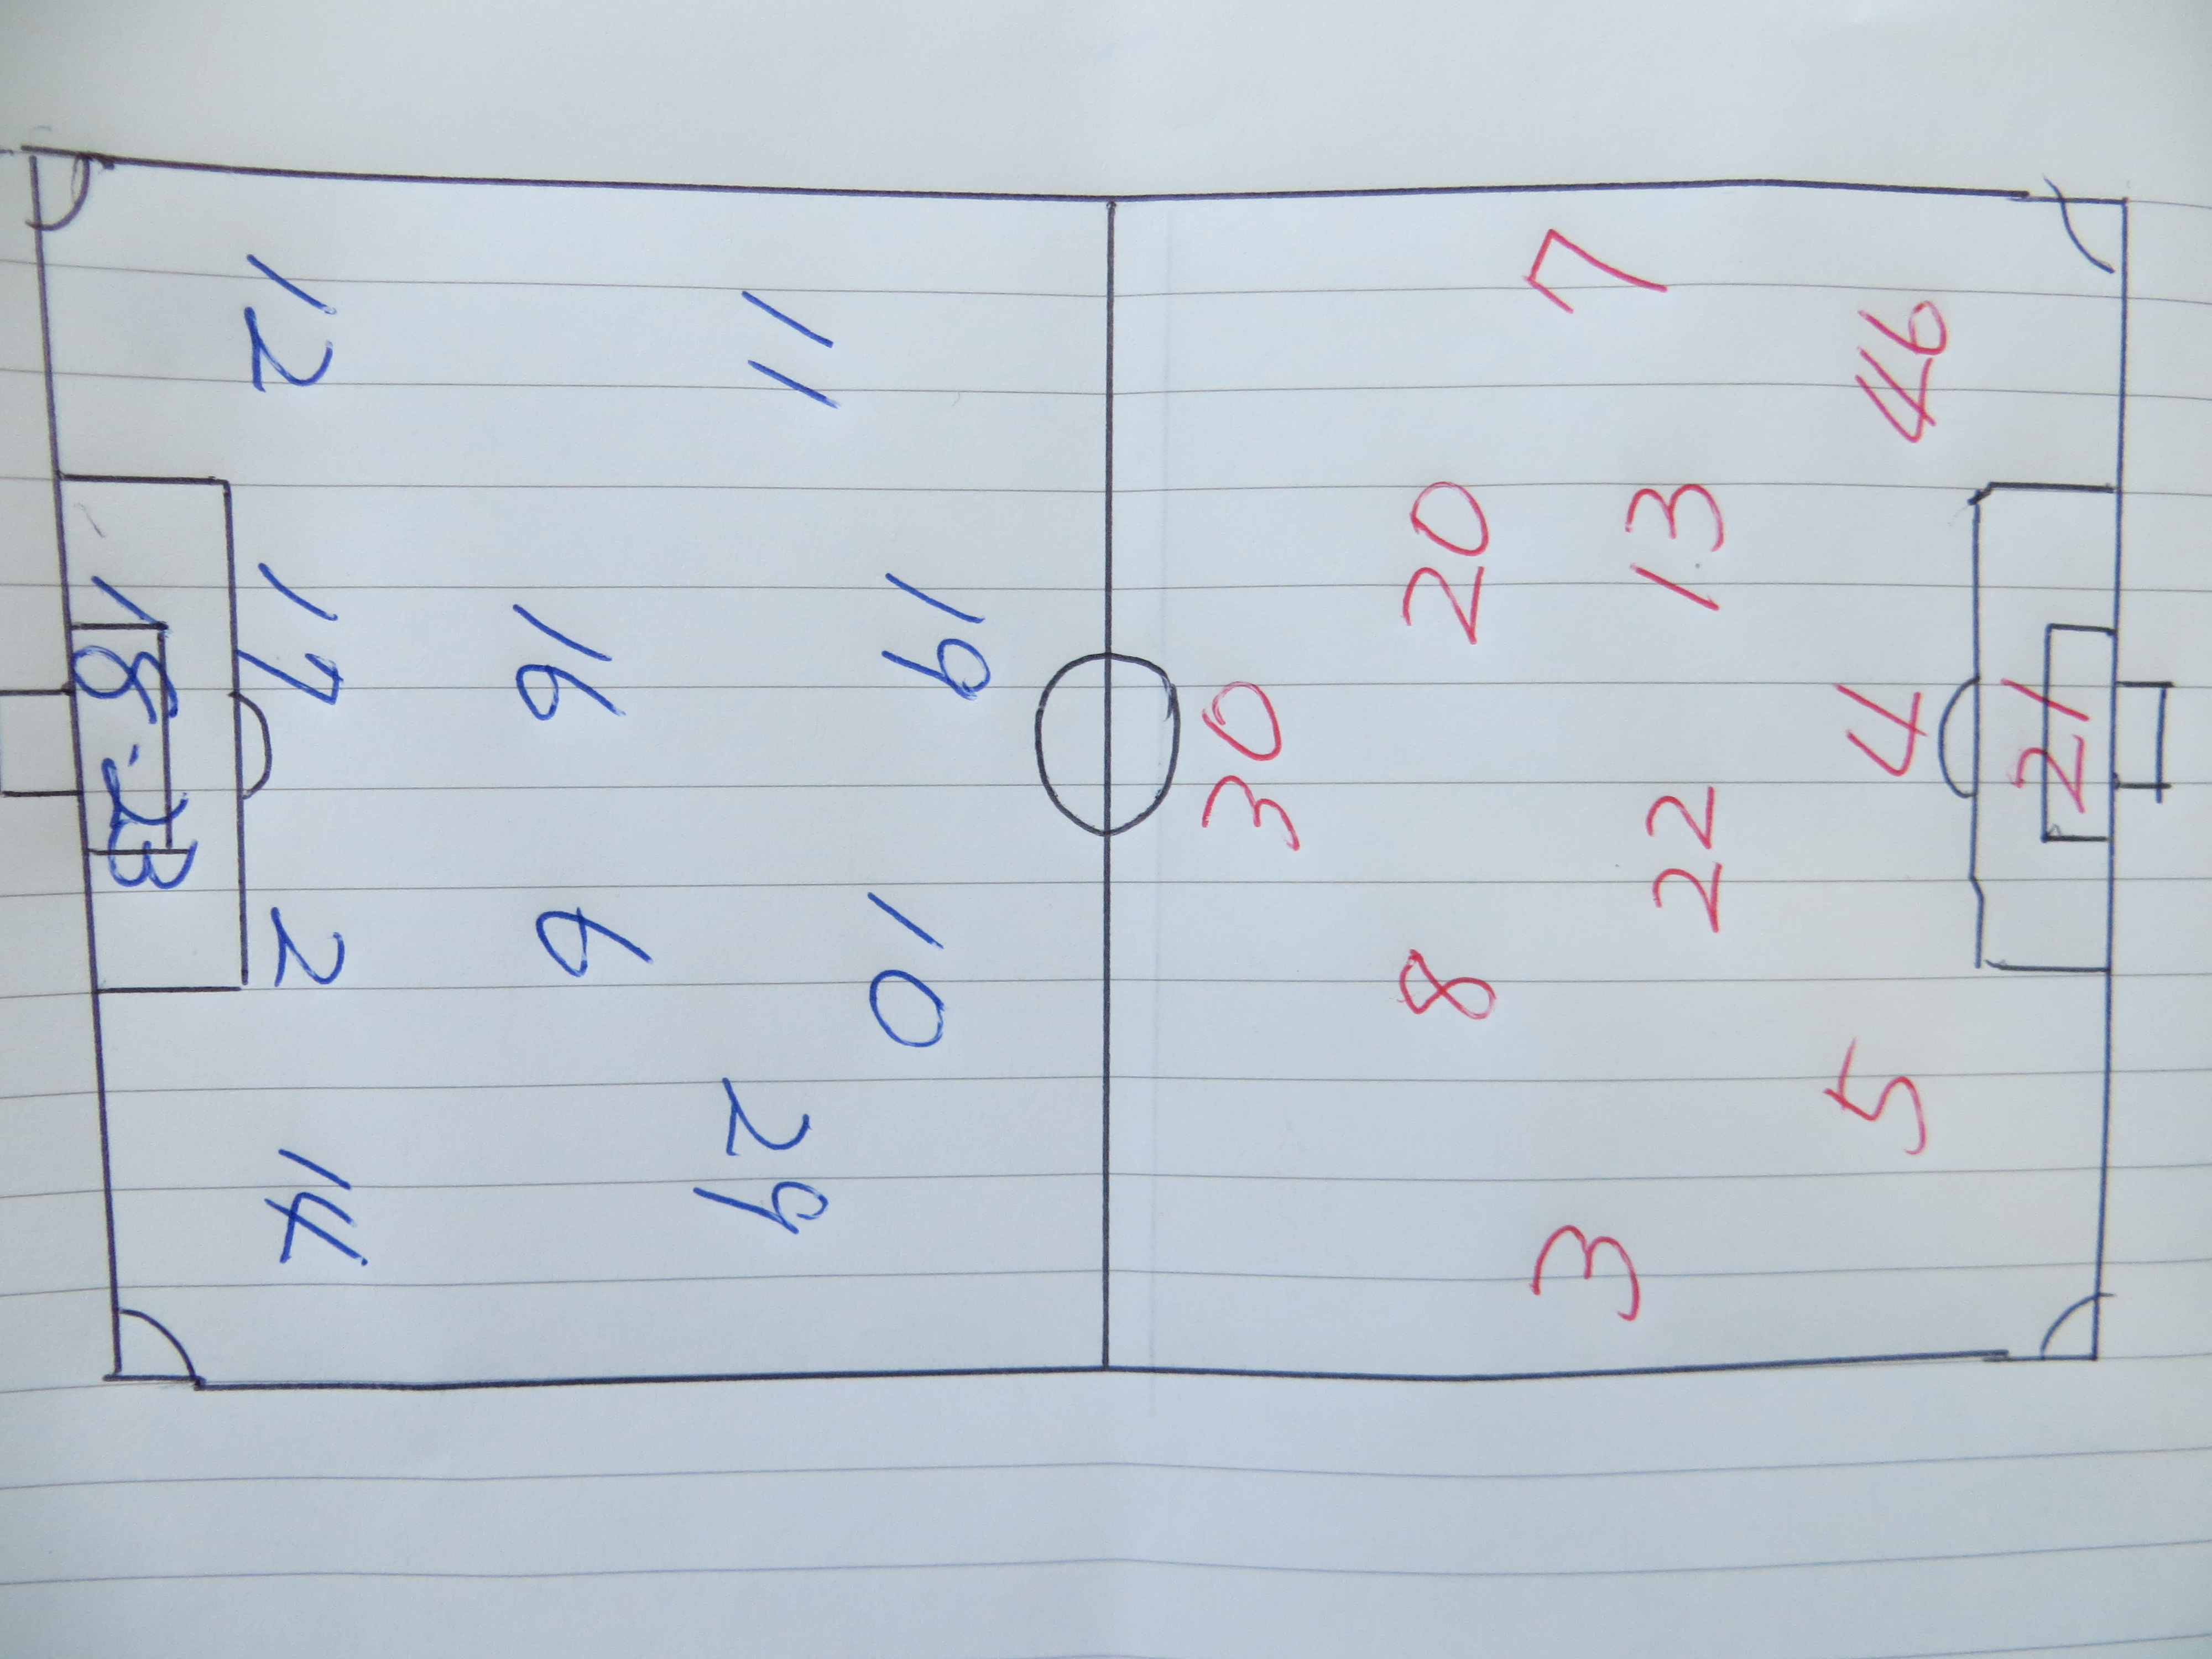 19 10
11 29
16 6
12 17 2 14
18-23
30
8 20
3 22 13 7
5 4 46
21